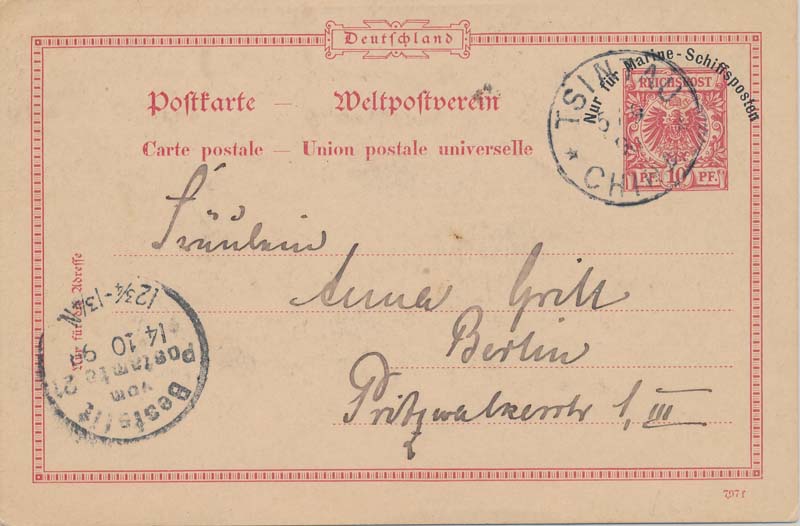 Deutschland
Nur für Marine-Schiffsposten
Postkarte — Weltpostverein
Carte postale — Union postale universelle
REICHSPOST
10 PF. 10 PF.
TSINTAU
CHINA
Fräulein
Anna Grill
Berlin
Pritzwalkerstr 1, III
Nur für die Adresse
Bestellt
vom
Postamte 21
14 10 9
12¾-1¾N
797f